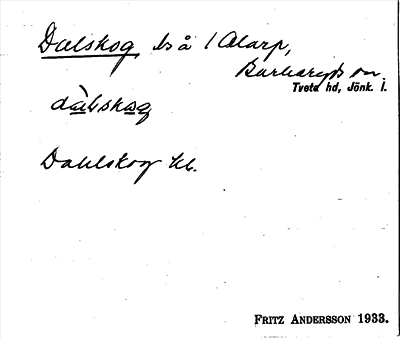 Dalskog, ls å 1 Alarp,
Barkeryds sn
Tveta hd, Jönk. l.
dàlskog
Dahlskog kb.
FRITZ ANDERSSON 1933.